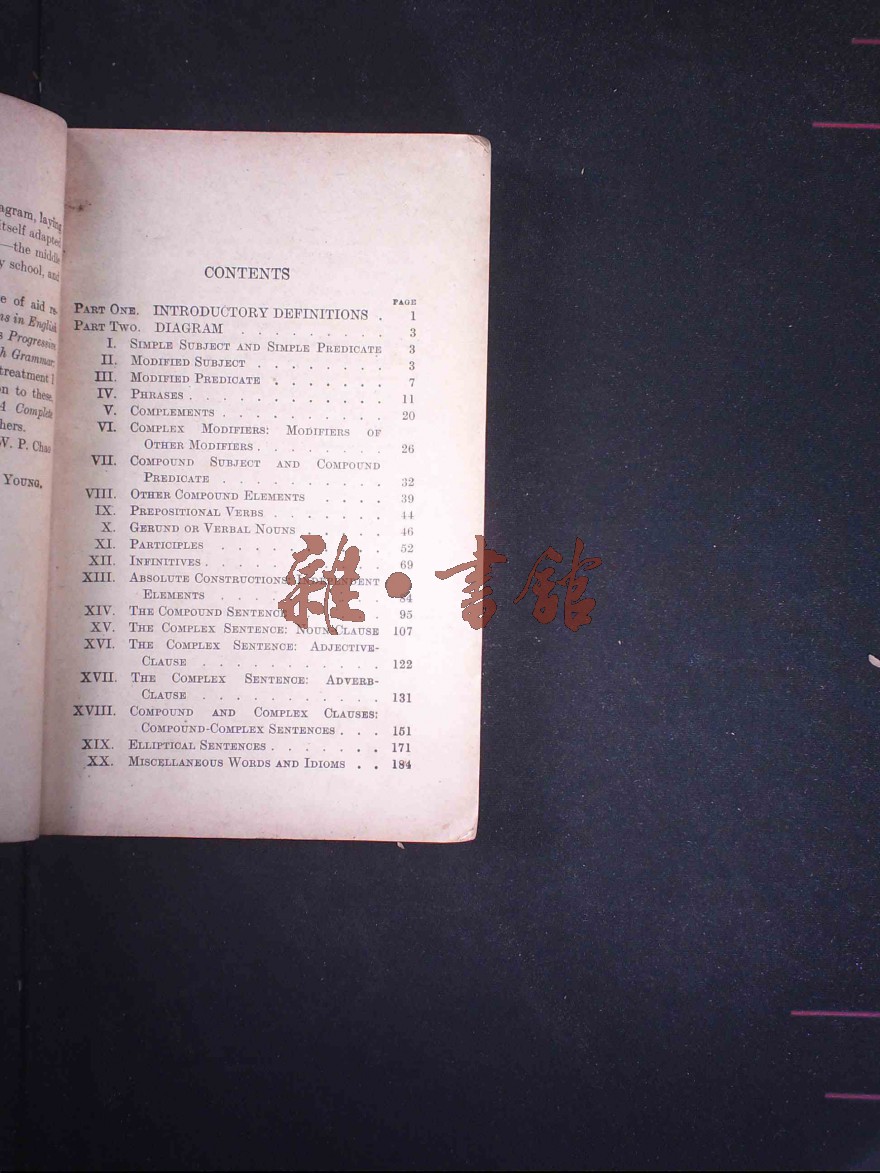 agram, laying
itself adapted
—the middle
y school, and
e of aid re-
ns in English
s Progressive
h Grammar.
treatment I
on to these.
A Complete
hers.
W. P. Chao
YOUNG.
CONTENTS
PAGE
PART ONE. INTRODUCTORY DEFINITIONS . 1
PART TWO. DIAGRAM . . . . . . . . . 3
I. SIMPLE SUBJECT AND SIMPLE PREDICATE 3
II. MODIFIED SUBJECT . . . . . . . 3
III. MODIFIED PREDICATE . . . . . . . 7
IV. PHRASES . . . . . . . . . . . 11
V. COMPLEMENTS . . . . . . . . . 20
VI. COMPLEX MODIFIERS: MODIFIERS OF
OTHER MODIFIERS . . . . . . . 26
VII. COMPOUND SUBJECT AND COMPOUND
PREDICATE . . . . . . . . . 32
VIII. OTHER COMPOUND ELEMENTS . . . . 39
IX. PREPOSITIONAL VERBS . . . . . . 44
X. GERUND OR VERBAL NOUNS . . . . . 46
XI. PARTICIPLES . . . . . . . . . 52
XII. INFINITIVES . . . . . . . . . . 69
XIII. ABSOLUTE CONSTRUCTIONS: INDEPENDENT
ELEMENTS . . . . . . . . . . 84
XIV. THE COMPOUND SENTENCE . . . . . 95
XV. THE COMPLEX SENTENCE: NOUN-CLAUSE 107
XVI. THE COMPLEX SENTENCE: ADJECTIVE-
CLAUSE . . . . . . . . . . 122
XVII. THE COMPLEX SENTENCE: ADVERB-
CLAUSE . . . . . . . . . . 131
XVIII. COMPOUND AND COMPLEX CLAUSES:
COMPOUND-COMPLEX SENTENCES . . . 151
XIX. ELLIPTICAL SENTENCES . . . . . . . 171
XX. MISCELLANEOUS WORDS AND IDIOMS . . 184
雜·書館